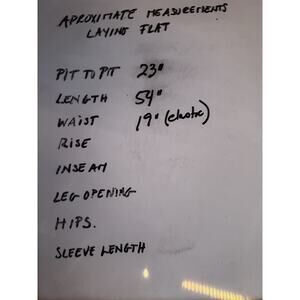 APROXIMATE MEASUREMENTS
LAYING FLAT
PIT TO PIT 23"
LENGTH 54"
WAIST 19" (elastic)
RISE
INSEAM
LEG OPENING
HIPS.
SLEEVE LENGTH